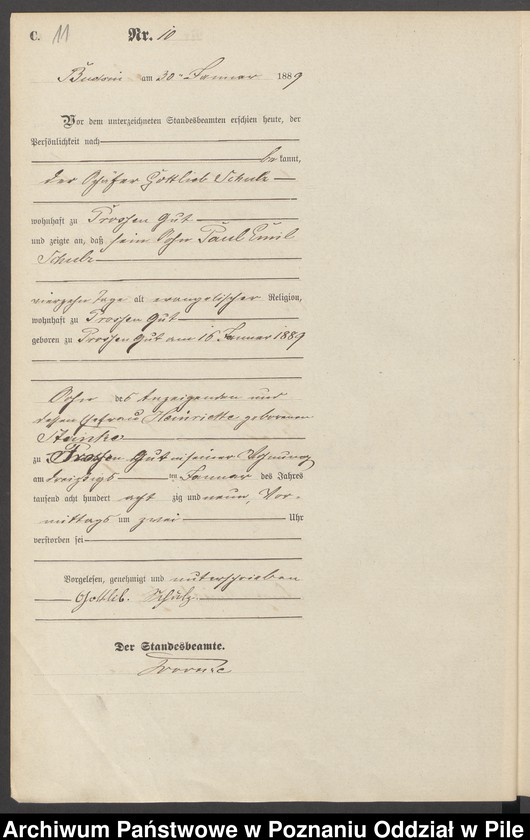 C. 11 Nr. 10
am 30ten Januar 1889
Vor dem unterzeichneten Standesbeamten erschien heute, der
Persönlichkeit nach
bekannt,
der Schäfer Gottlieb Schulz
wohnhaft zu Prossen Gut
und zeigte an, daß sein Sohn Paul Emil
Schulz
vierzehn Tage alt evangelischer Religion,
wohnhaft zu Prossen Gut
geboren zu Prossen Gut am 16 Januar 1889
Sohn des Anzeigenden und
dessen Ehefrau Henriette geborenen
zu Prossen Gut in seiner Wohnung
am dreißigs ten Januar des Jahres
tausend acht hundert acht zig und neun, Vor-
mittags um zwei Uhr
verstorben sei
Vorgelesen, genehmigt und unterschrieben
Gottlieb Schulz
Der Standesbeamte.
Archiwum Państwowe w Poznaniu Oddział w Pile